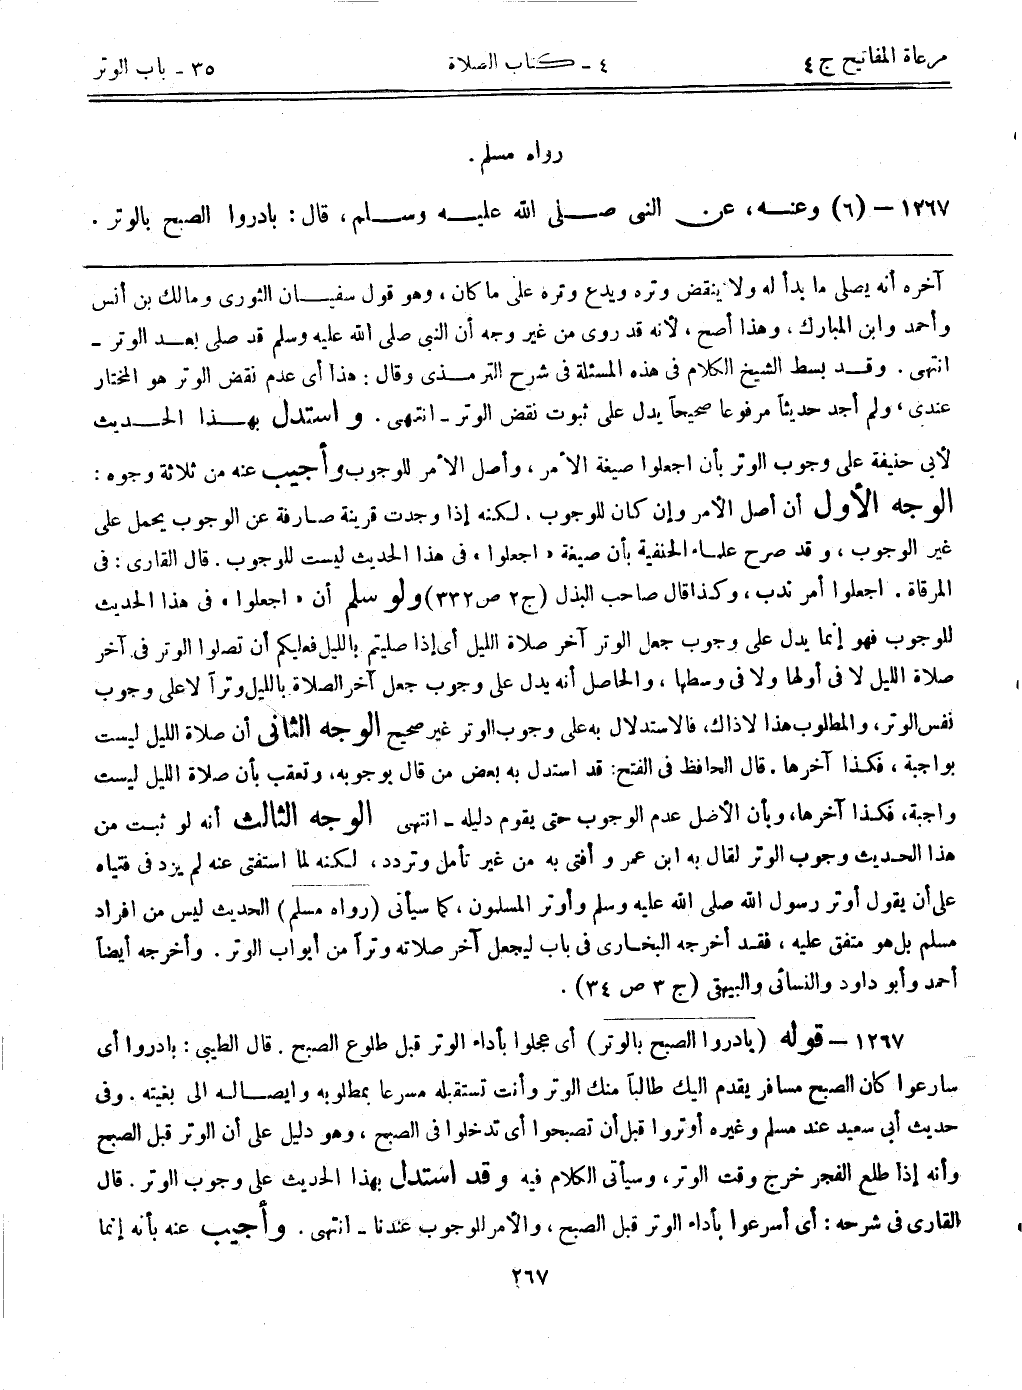 مرعاة المفاتيح ج ٤
٤ - كتاب الصلاة
٣٥ - باب الوتر
رواه مسلم .
١٢٦٧ - (٦) وعنه، عن النبى صلى الله عليه وسلم، قال: بادروا الصبح بالوتر .
آخره أنه يصلى ما بدأ له ولا ينقض وتره ويدع وتره على ما كان، وهو قول سفيان الثورى ومالك بن أنس
وأحمد وابن المبارك، وهذا أصح، لأنه قد روى من غير وجه أن النبي صلى الله عليه وسلم قد صلى بعد الوتر -
انتهى. وقد بسط الشيخ الكلام فى هذه المسئلة فى شرح الترمذى وقال: هذا أى عدم نقض الوتر هو المختار
عندى، ولم أجد حديثاً مرفوعا صحيحاً يدل على ثبوت نقض الوتر - انتهى. واستدل بهذا الحديث
لأبى حنيفة على وجوب الوتر بأن اجعلوا صيغة الأمر، وأصل الأمر للوجوب وأجيب عنه من ثلاثة وجوه:
الوجه الأول أن أصل الأمر وإن كان للوجوب. لكنه إذا وجدت قرينة صارفة عن الوجوب يحمل على
غير الوجوب، وقد صرح علماء الحنفية بأن صيغة «اجعلوا» فى هذا الحديث ليست للوجوب. قال القارى: فى
المرقاة. اجعلوا أمر ندب، وكذا قال صاحب البذل (ج٢ ص٣٣٢) ولو سلم أن «اجعلوا» فى هذا الحديث
للوجوب فهو إنما يدل على وجوب جعل الوتر آخر صلاة الليل أى إذا صليتم بالليل فعليكم أن تصلوا الوتر فى آخر
صلاة الليل لا فى أولها ولا فى وسطها، والحاصل أنه يدل على وجوب جعل آخر الصلاة بالليل وتراً لا على وجوب
نفس الوتر، والمطلوب هذا لا ذاك، فالاستدلال به على وجوب الوتر غير صحيح الوجه الثانى أن صلاة الليل ليست
بواجبة، فكذا آخرها. قال الحافظ فى الفتح: قد استدل به بعض من قال بوجوبه، وتعقب بأن صلاة الليل ليست
واجبة، فكذا آخرها، وبأن الأصل عدم الوجوب حتى يقوم دليله - انتهى الوجه الثالث أنه لو ثبت من
هذا الحديث وجوب الوتر لقال به ابن عمر و أفتى به من غير تأمل وتردد، لكنه لما استفتى عنه لم يزد فى فتياه
على أن يقول أوتر رسول الله صلى الله عليه وسلم وأوتر المسلمون، كما سيأتى (رواه مسلم) الحديث ليس من افراد
مسلم بل هو متفق عليه، فقد أخرجه البخارى فى باب ليجعل آخر صلاته وتراً من أبواب الوتر. وأخرجه أيضاً
أحمد وأبو داود والنسائى والبيهقى (ج ٣ ص ٣٤).
١٢٦٧ - قوله (بادروا الصبح بالوتر) أى عجلوا بأداء الوتر قبل طلوع الصبح. قال الطيبى: بادروا أى
سارعوا كأن الصبح مسافر يقدم اليك طالباً منك الوتر وأنت تستقبله مسرعا بمطلوبه وايصاله الى بغيته. وفى
حديث أبى سعيد عند مسلم وغيره أوتروا قبل أن تصبحوا أى تدخلوا فى الصبح، وهو دليل على أن الوتر قبل الصبح
وأنه إذا طلع الفجر خرج وقت الوتر، وسيأتى الكلام فيه وقد استدل بهذا الحديث على وجوب الوتر. قال
القارى فى شرحه: أى أسرعوا بأداء الوتر قبل الصبح، والأمر للوجوب عندنا - انتهى. وأجيب عنه بأنه إنما
٢٦٧